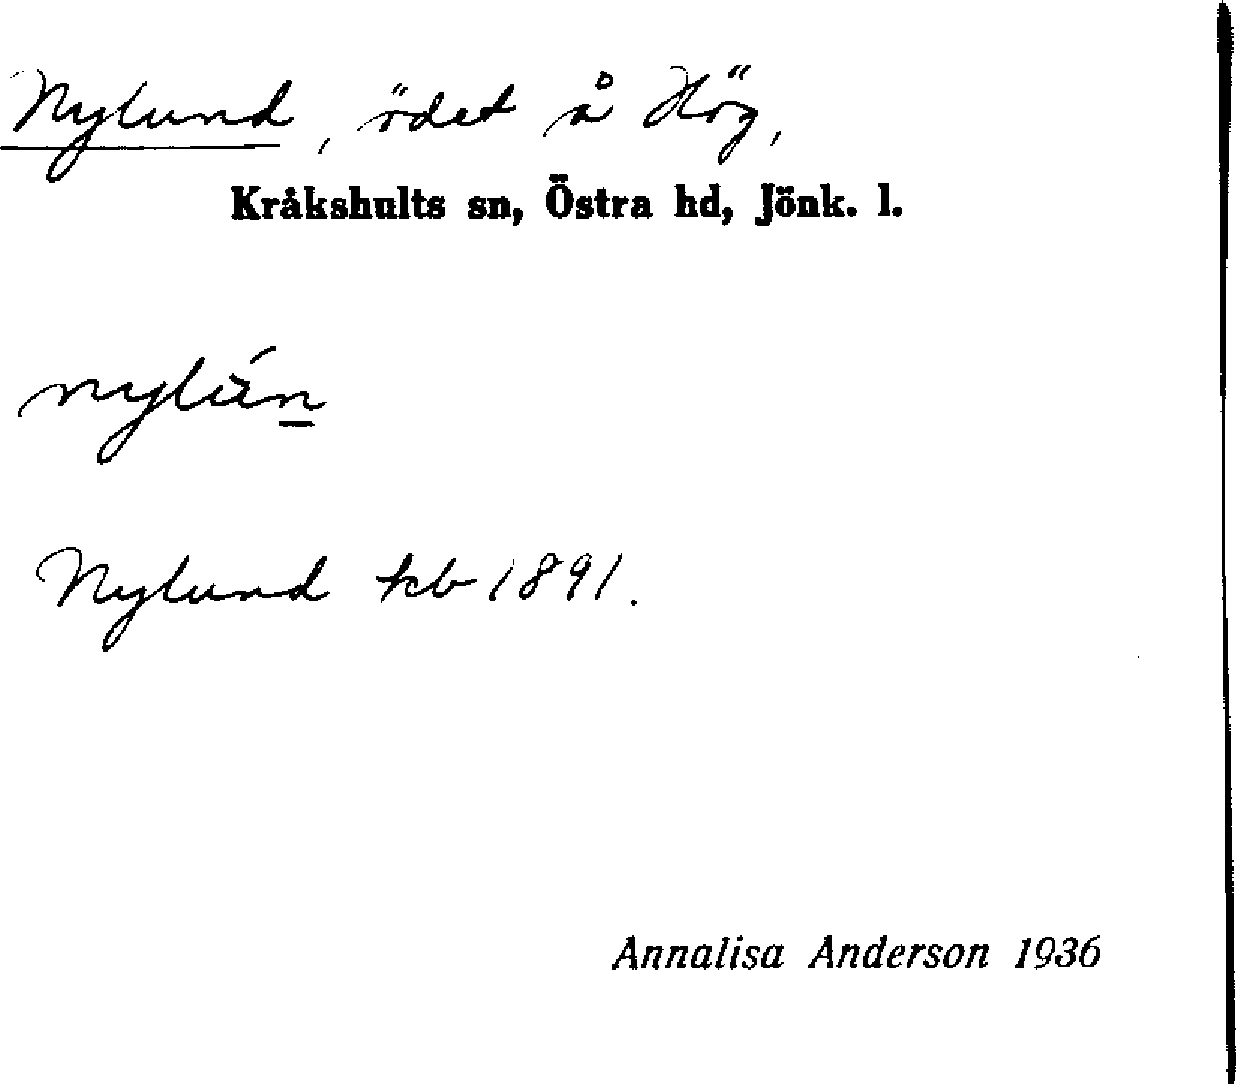 Nylund, ödet å Hög,
Kråkshults sn, Östra hd, Jönk. l.
Nylund kb 1891.
Annalisa Anderson 1936